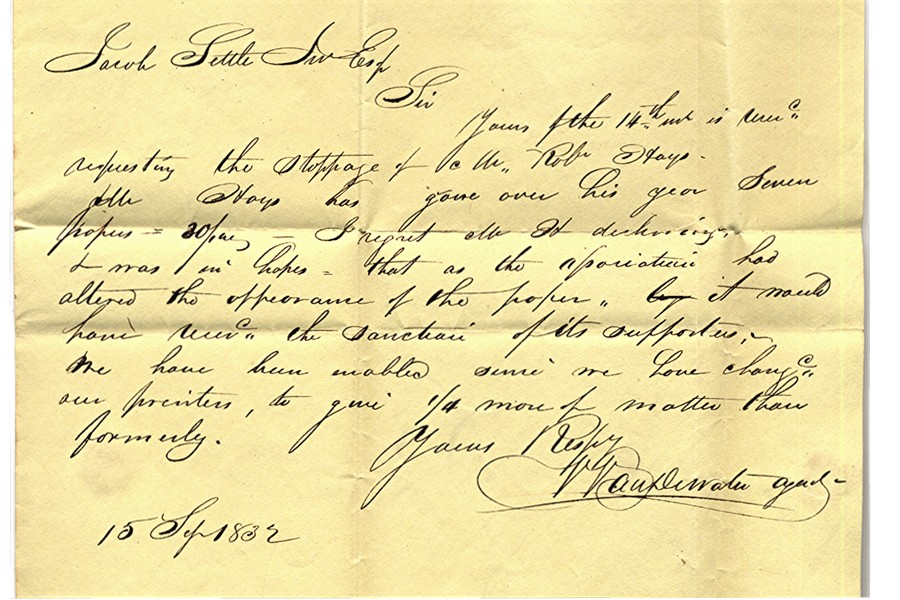 Jacob Settle Jnr Esq
Sir
Yours of the 14th inst is recec
requesting the stoppage of Mr. Robt Hays.
Mr Hays has gone over his year Seven
papers = 30/
I regret Mr H declining,
& was in hopes = that as the association had
altered the appearance of the paper, it would
have recec the sanction of its supporters,
We have been enabled since we have changc
our printers, to give 1/4 more of matter than
formerly.
Yours Respy
Vandewater agent
15 Sep 1832